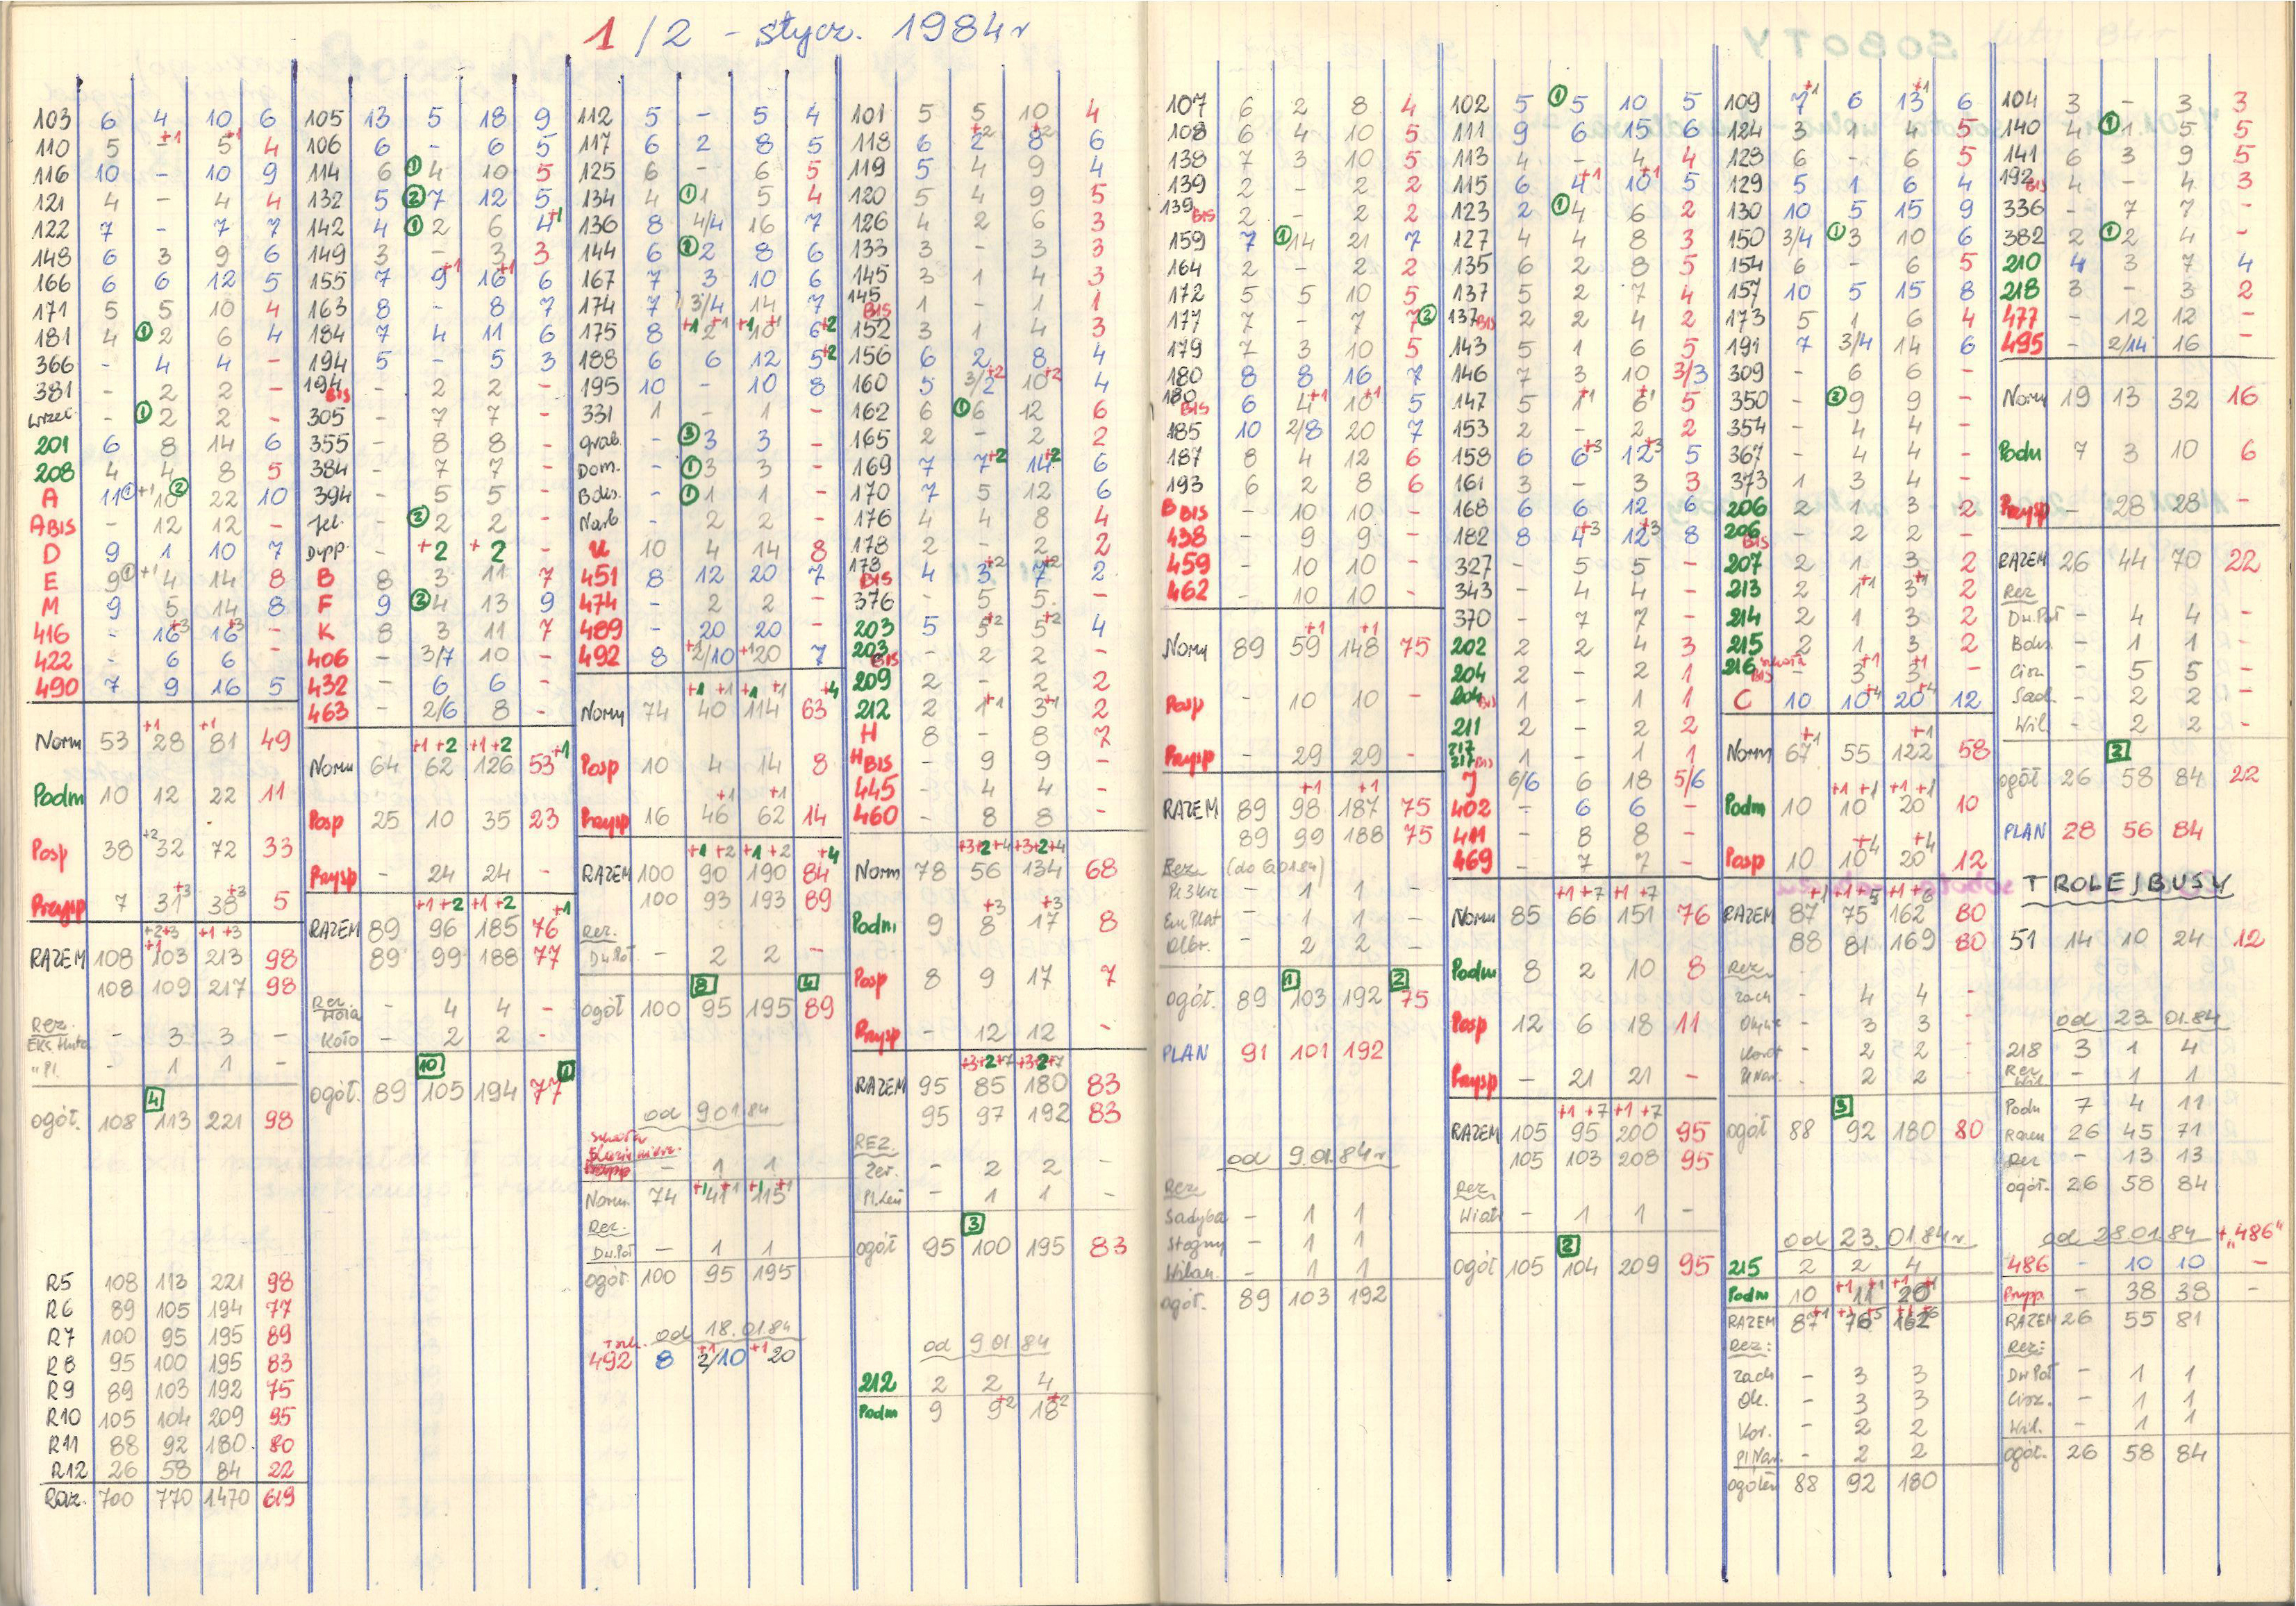 1/2 - stycz. 1984r
103 6 4 10 6
110 5 -+1 5+1 4
116 10 - 10 9
121 4 - 4 4
122 7 - 7 7
148 6 3 9 6
166 6 6 12 5
171 5 5 10 4
181 4 ① 2 6 4
366 - 4 4 -
381 - 2 2 -
- ① 2 2 -
201 6 8 14 6
208 4 4 8 5
A 11① +1 10② 22 10
A BIS - 12 12 -
D 9 1 10 7
E 9① +1 4 14 8
M 9 5 14 8
416 - 16+3 16+3 -
422 - 6 6 -
490 7 9 16 5
Norm 53 +1 28 +1 81 49
Podm 10 12 22 11
Posp 38 +2 32 72 33
Przysp 7 31+3 38+3 5
+2+3 +1 +3
RAZEM 108 +1 103 213 98
108 109 217 98
Rez.
Eks. Huta - 3 3 -
" Pl. - 1 1 -
4
ogół. 108 113 221 98
R5 108 113 221 98
R6 89 105 194 77
R7 100 95 195 89
R8 95 100 195 83
R9 89 103 192 75
R10 105 104 209 95
R11 88 92 180 80
R12 26 58 84 22
Raz. 700 770 1470 619
105 13 5 18 9
106 6 - 6 5
114 6 ① 4 10 5
132 5 ② 7 12 5
142 4 ① 2 6 4+1
149 3 - 3 3
155 7 9+1 16+1 6
163 8 - 8 7
184 7 4 11 6
194 5 - 5 3
194 BIS - 2 2 -
305 - 7 7 -
355 - 8 8 -
384 - 7 7 -
394 - 5 5 -
Jel. - ② 2 2 -
- +2 +2 -
B 8 3 11 7
F 9 ② 4 13 9
K 8 3 11 7
406 - 3/7 10 -
432 - 6 6 -
463 - 2/6 8 -
+1 +2 +1 +2
Norm 64 62 126 53+1
Posp 25 10 35 23
Przysp - 24 24 -
+1 +2 +1 +2 +1
RAZEM 89 96 185 76
89 99 188 77
Rez.
Wola - 4 4 -
Koło - 2 2 -
10 1
ogół. 89 105 194 77
112 5 - 5 4
117 6 2 8 5
125 6 - 6 5
134 4 ① 1 5 4
136 8 4/4 16 7
144 6 ② 2 8 6
167 7 3 10 6
174 7 3/4 14 7
175 8 +1 2+1 +1 10+1 6+2
188 6 6 12 5+2
195 10 - 10 8
331 1 - 1 -
Grab. - ③ 3 3 -
Dom. - ① 3 3 -
Boks. - ① 1 1 -
Narb - 2 2 -
U 10 4 14 8
451 8 12 20 7
474 - 2 2 -
489 - 20 20 -
492 8 +1 2/10 +1 20 7
+1 +1 +1 +1 +4
Norm 74 40 114 63
Posp 10 4 14 8
+1 +1
Przysp 16 46 62 14
+1 +2 +1 +2 +4
RAZEM 100 90 190 84
100 93 193 89
Rez.
Dw.Poł - 2 2 -
3 4
ogół 100 95 195 89
od 9.01.84
- 1 1
Norm. 74 +1 41+1 +1 115+1
Rez.
Dw.Poł - 1 1
ogół. 100 95 195
od 18.01.84
492 8 +1 2/10 +1 20
101 5 5 10 4
118 6 2+2 8+2 6
119 5 4 9 4
120 5 4 9 5
126 4 2 6 3
133 3 - 3 3
145 3 1 4 3
145 BIS 1 - 1 1
152 3 1 4 3
156 6 2 8 4
160 5 3/2+2 10+2 4
162 6 ① 6 12 6
165 2 - 2 2
169 7 7+2 14+2 6
170 7 5 12 6
176 4 4 8 4
178 2 - 2 2
178 BIS 4 3+2 7+2 2
376 - 5 5 -
203 5 5+2 5+2 4
203 BIS - 2 2 -
209 2 - 2 2
212 2 1+1 3+1 2
H 8 - 8 7
H BIS - 9 9 -
445 - 4 4 -
460 - 8 8 -
+3+2+4 +3+2+4
Norm 78 56 134 68
Podm 9 8+3 17+3 8
Posp 8 9 17 7
Przysp - 12 12 -
+3+2+7 +3+2+7
RAZEM 95 85 180 83
95 97 192 83
REZ.
Żer. - 2 2 -
Pl.Len - 1 1 -
3
ogół 95 100 195 83
od 9.01.84
212 2 2 4
Podm 9 9+2 18+2
107 6 2 8 4
108 6 4 10 5
138 7 3 10 5
139 2 - 2 2
139 BIS 2 - 2 2
159 7 ① 14 21 7
164 2 - 2 2
172 5 5 10 5
177 7 - 7 7②
179 7 3 10 5
180 8 8 16 7
180 BIS 6 4+1 10+1 5
185 10 2/8 20 7
187 8 4 12 6
193 6 2 8 6
B BIS - 10 10 -
438 - 9 9 -
459 - 10 10 -
462 - 10 10 -
+1 +1
Norm 89 59 148 75
Posp - 10 10 -
Przysp - 29 29 -
+1 +1
RAZEM 89 98 187 75
89 99 188 75
Rez. (do 6.01.84)
Pl.3Krz - 1 1 -
Em.Plat - 1 1 -
Olbr. - 2 2 -
1 2
ogół. 89 103 192 75
PLAN 91 101 192
od 9.01.84r
Rez
Sadyba - 1 1
Stegny - 1 1
Wilan. - 1 1
ogół. 89 103 192
102 5 ① 5 10 5
111 9 6 15 6
113 4 - 4 4
115 6 4+1 10+1 5
123 2 ① 4 6 2
127 4 4 8 3
135 6 2 8 5
137 5 2 7 4
137 BIS 2 2 4 2
143 5 1 6 5
146 7 3 10 3/3
147 5 1+1 6+1 5
153 2 - 2 2
158 6 6+3 12+3 5
161 3 - 3 3
168 6 6 12 6
182 8 4+3 12+3 8
327 - 5 5 -
343 - 4 4 -
370 - 7 7 -
202 2 2 4 3
204 2 - 2 1
204 BIS 1 - 1 1
211 2 - 2 2
217
217 BIS 1 - 1 1
J 6/6 6 18 5/6
402 - 6 6 -
411 - 8 8 -
469 - 7 7 -
+1 +7 +1 +7
Norm 85 66 151 76
Podm 8 2 10 8
Posp 12 6 18 11
Przysp - 21 21 -
+1 +7 +1 +7
RAZEM 105 95 200 95
105 103 208 95
Rez.
Wiatr - 1 1 -
2
ogół 105 104 209 95
SOBOTY
109 7+1 6 13+1 6
124 3 1 4 5
128 6 - 6 5
129 5 1 6 4
130 10 5 15 9
150 3/4 ① 3 10 6
154 6 - 6 5
157 10 5 15 8
173 5 1 6 4
191 7 3/4 14 6
309 - 6 6 -
350 - ② 9 9 -
354 - 4 4 -
367 - 4 4 -
373 1 3 4 -
206 2 1 3 2
206 BIS - 2 2 -
207 2 1 3 2
213 2 1+1 3+1 2
214 2 1 3 2
215 2 1 3 2
216 BIS szkoła 3+1 3+1 -
C 10 10+4 20+4 12
+1 +1
Norm 67 55 122 58
+1 +1 +1 +1
Podm 10 10 20 10
Posp 10 10+4 20+4 12
+1 +1+5 +1+8
RAZEM 87 75 162 80
88 81 169 80
Rez.
Zach - 4 4 -
Okęcie - 3 3 -
Korot - 2 2 -
Pl Nar. - 2 2 -
3
ogół 88 92 180 80
od 23.01.84r
215 2 2 4
Podm 10 +1 11+1 +1 20+1
RAZEM 87+1 76 162
Rez:
Zach - 3 3
Ok. - 3 3
Kor. - 2 2
Pl Nar. - 2 2
ogółem 88 92 180
104 3 - 3 3
140 4 ① 1 5 5
141 6 3 9 5
192 BIS 4 - 4 3
336 - 7 7 -
382 2 ① 2 4 -
210 4 3 7 4
218 3 - 3 2
477 - 12 12 -
495 - 2/14 16 -
Norm 19 13 32 16
Podm 7 3 10 6
Przysp - 28 28 -
RAZEM 26 44 70 22
Rez
Dw.Poł - 4 4 -
Boks. - 1 1 -
Cisz. - 5 5 -
Sad. - 2 2 -
Wil. - 2 2 -
2
ogół 26 58 84 22
PLAN 28 56 84
TROLEJBUSY
51 14 10 24 12
od 23.01.84
218 3 1 4
Rez
Wil - 1 1
Podm 7 4 11
Razem 26 45 71
Rez - 13 13
ogół. 26 58 84
od 28.01.84 + "486"
486 - 10 10 -
Przysp. - 38 38 -
RAZEM 26 55 81
Rez:
Dw Poł - 1 1
Cisz. - 1 1
Wil. - 1 1
ogół. 26 58 84